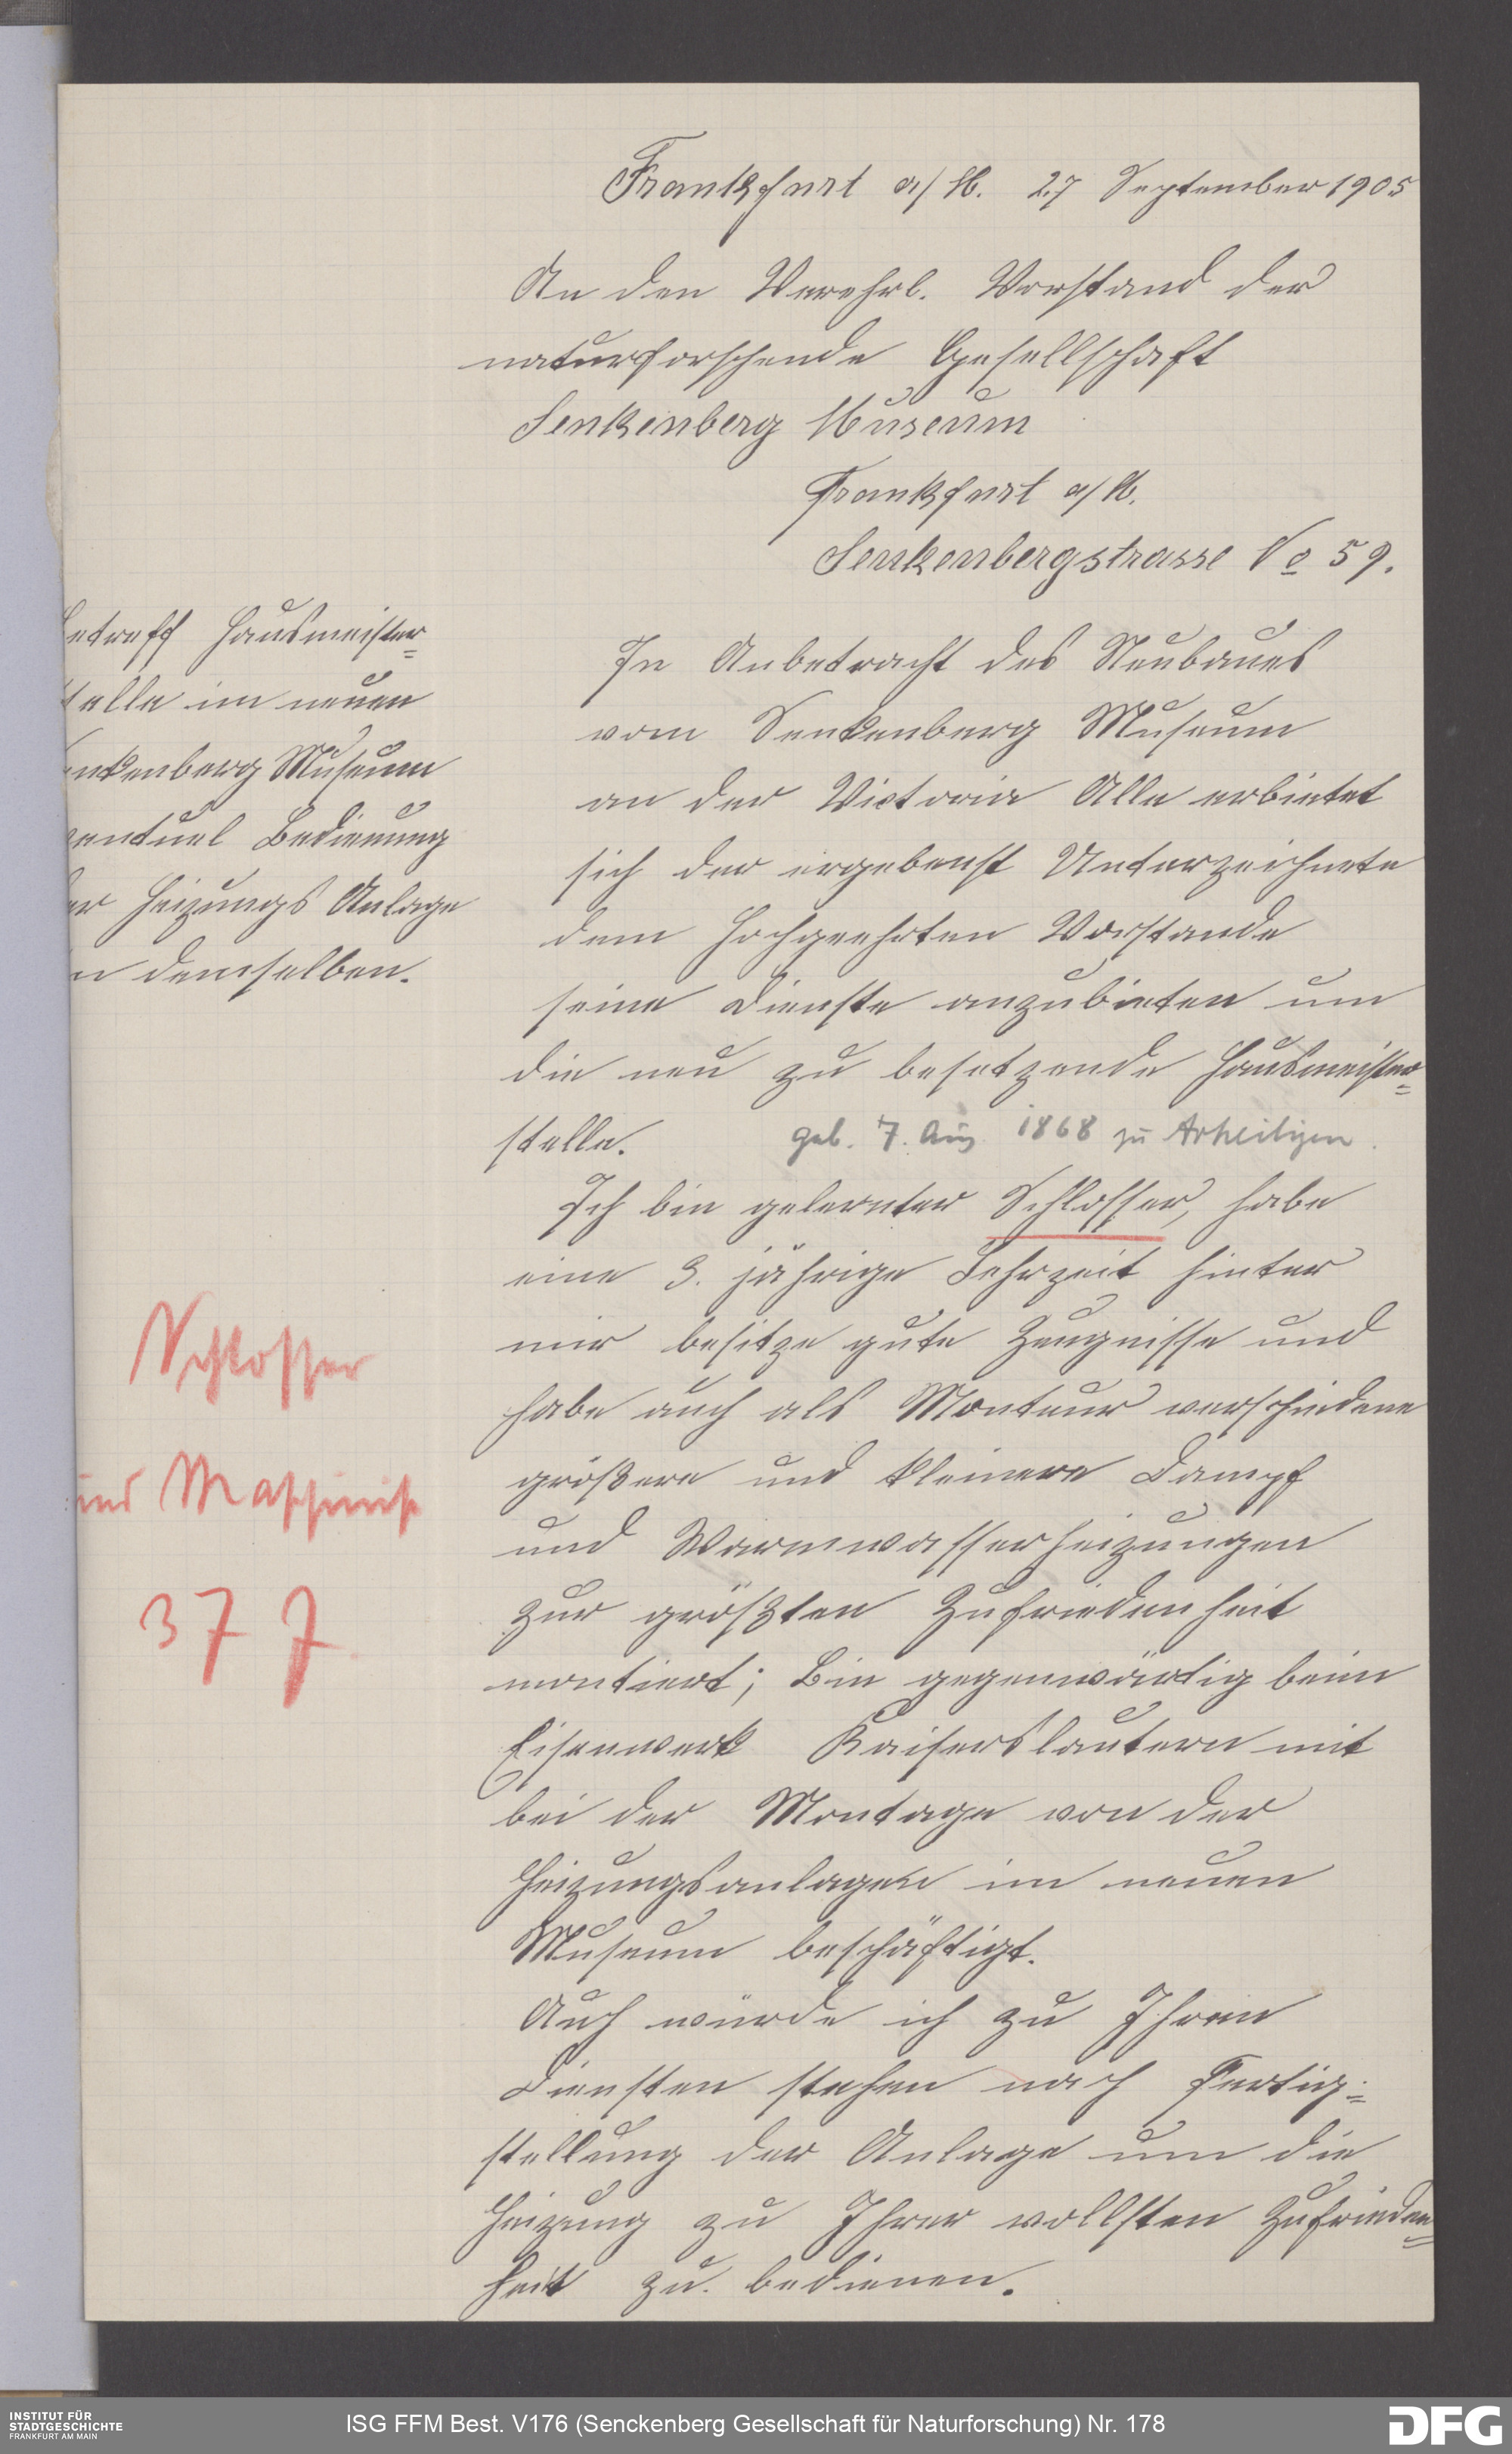 Frankfurt a/M. 27 September 1905
An den Verehrl. Vorstand der
naturforschende Gesellschaft
Senkenberg Museum
Frankfurt a/M.
Senkenbergstrasse No 59.
etreff Hausmeister=
telle im neuen
enkenberg Museum
ventuel Bedienung
der Heizungs Anlage
in demselben.
In Anbetracht des Neubaues
vom Senkenberg Museum
an der Victoria Alle erbietet
sich der ergebenst Unterzeichnete
dem Hochgeehrten Vorstande
seine Dienste anzubieten um
die neu zu besetzende Hausmeister=
stelle.
geb. 7. Aug 1868 zu Arheiligen.
Ich bin gelernter Schlosser, habe
eine 3. jährige Lehrzeit hinter
mir besitze gute Zeugnisse und
habe auch als Monteur verschiedene
größere und kleinere Dampf
und Warmwasserheizungen
zur größten Zufriedenheit
montiert; Bin gegenwärtig beim
Eisenwerk Kaiserslautern mit
bei der Montage von der
Heizungsanlagen im neuen
Museum beschäftigt.
Auch würde ich zu Ihren
Diensten stehen nach Fertig=
stellung der Anlage um die
Heizung zu Ihrer vollsten Zufrieden=
heit zu bedienen.
Schlosser
und Maschinist
37 J
INSTITUT FÜR
STADTGESCHICHTE
FRANKFURT AM MAIN
ISG FFM Best. V176 (Senckenberg Gesellschaft für Naturforschung) Nr. 178
DFG